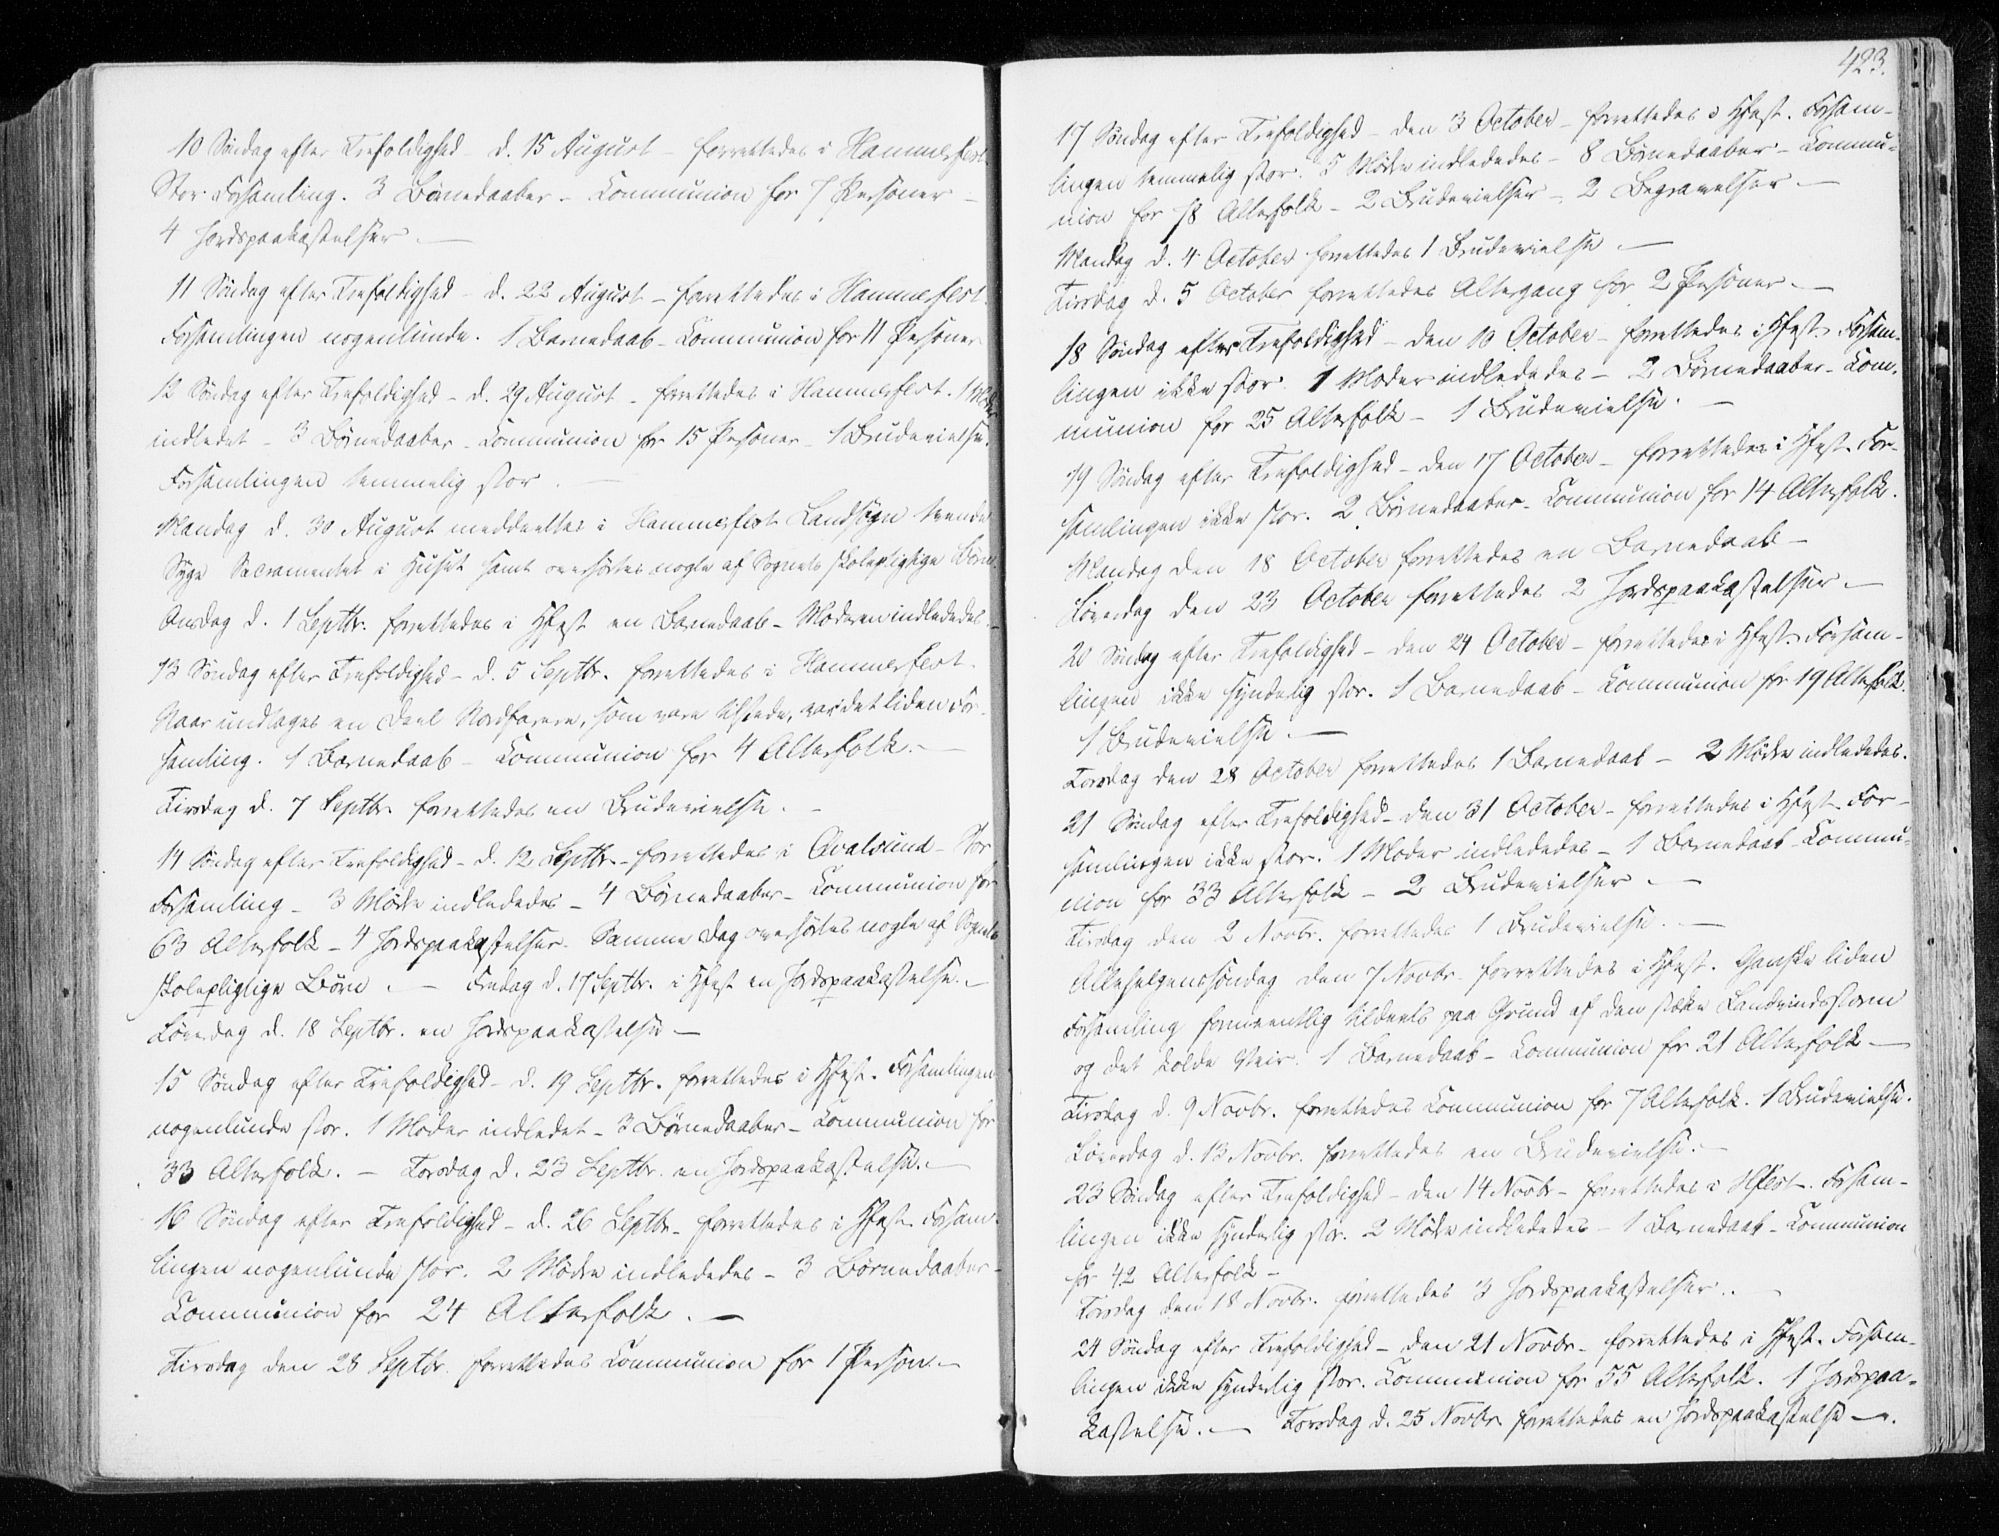 10 Søndag efter Trefoldighed - d. 15 August - forrettedes i Hammerfest.
Stor Forsamling. 3 Børnedaaber - Communion for 7 Personer -
4 Jordspaakastelser. -
11 Søndag efter Trefoldighed - d. 22 August - forrettedes i Hammerfest.
Forsamlingen nogenlunde. 1 Barnedaab - Communion for 11 Personer
12 Søndag efter Trefoldighed - d. 29 August - forrettedes i Hammerfest. 1 Moder
indledet - 3 Børnedaaber - Communion for 15 Personer - 1 Brudevielse.
Forsamlingen temmelig stor. -
Mandag d. 30 August meddeeltes i Hammerfest Landsogn tvende
Syge Sacramentet i Huset samt overhørtes nogle af Sognets skolepligtige Børn.
Onsdag d. 1 Septbr. forrettedes i Hfest en Barnedaab - Moderen indlededes. -
13 Søndag efter Trefoldighed - d. 5 Septbr. forrettedes i Hammerfest.
Naar undtages en Deel Nordfarere, som vare tilstede, var det liden For-
samling. 1 Barnedaab - Communion for 4 Alterfolk. -
Tirsdag d. 7 Septbr. forrettedes en Brudevielse. -
14 Søndag efter Trefoldighed - d. 12 Septbr. - forrettedes i Qvalsund - Stor
Forsamling - 3 Mødre indlededes - 4 Børnedaaber - Communion for
63 Alterfolk - 4 Jordspaakastelser. Samme Dag overhørtes nogle af Sognets
skolepligtige Børn. - Fredag d. 17 Septbr. i Hfest en Jordspaakastelse. -
Løverdag d. 18 Septbr. en Jordspaakastelse -
15 Søndag efter Trefoldighed - d. 19 Septbr. forrettedes i Hfest. Forsamlingen
nogenlunde stor. 1 Moder indledet - 3 Børnedaaber - Communion for
33 Alterfolk. - Torsdag d. 23 Septbr. en Jordspaakastelse. -
16 Søndag efter Trefoldighed - d. 26 Septbr. - forrettedes i Hfest. Forsam-
lingen nogenlunde stor. 2 Mødre indlededes - 3 Børnedaaber -
Communion for 24 Alterfolk. -
Tirsdag den 28 Septbr. forrettedes Communion for 1 Person. -
423.
17 Søndag efter Trefoldighed - den 3 October - forrettedes i Hfest. Forsam-
lingen temmelig stor. 5 Mødre indlededes - 8 Børnedaaber - Commu-
nion for 78 Alterfolk - 2 Brudevielser - 2 Begravelser -
Mandag d. 4 October forrettedes 1 Brudevielse. -
Tirsdag d. 5 October forrettedes Altergang for 2 Personer. -
18 Søndag efter Trefoldighed - den 10 October - forrettedes i Hfest. Forsam-
lingen ikke stor. 1 Moder indlededes - 2 Børnedaaber - Com-
munion for 25 Alterfolk - 1 Brudevielse. -
19 Søndag efter Trefoldighed - den 17 October - forrettedes i Hfest. For-
samlingen ikke stor. 2 Børnedaaber - Communion for 14 Alterfolk.
Mandag den 18 October forrettedes en Barnedaab -
Løverdag den 23 October forrettedes 2 Jordspaakastelser. -
20 Søndag efter Trefoldighed - den 24 October - forrettedes i Hfest. Forsam-
lingen ikke synderlig stor. 1 Barnedaab - Communion for 19 Alterfolk.
1 Brudevielse. -
Torsdag den 28 October forrettedes 1 Barnedaab - 2 Mødre indlededes.
21 Søndag efter Trefoldighed - den 31 October - forrettedes i Hfest. For-
samlingen ikke stor. 1 Moder indlededes - 1 Barnedaab - Commu-
nion for 33 Alterfolk - 2 Brudevielser. -
Tirsdag den 2 Novbr. forrettedes 1 Brudevielse. -
Allehelgenssøndag den 7 Novbr. forrettedes i Hfest. Ganske liden
Forsamling formeentlig tildeels paa Grund af den stærke Landvindsstorm
og det kolde Veir. 1 Barnedaab - Communion for 21 Alterfolk -
Tirsdag d. 9 Novbr. forrettedes Communion for 7 Alterfolk. 1 Brudevielse.
Løverdag d. 13 Novbr. forrettedes en Brudevielse. -
23 Søndag efter Trefoldighed - den 14 Novbr. - forrettedes i Hfest. Forsam-
lingen ikke synderlig stor. 2 Mødre indlededes - 1 Barnedaab - Communion
for 42 Alterfolk -
Torsdag den 18 Novbr. forrettedes 3 Jordspaakastelser. -
24 Søndag efter Trefoldighed - den 21 Novbr. - forrettedes i Hfest. Forsam-
lingen ikke synderlig stor. Communion for 55 Alterfolk. 1 Jordspaa-
kastelse. - Torsdag d. 25 Novbr. forrettedes en Jordspaakastelse -.